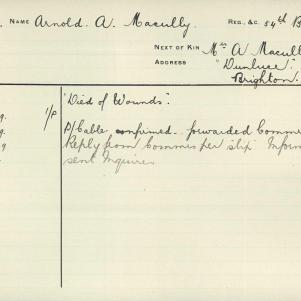 NAME Arnold. A. Macully. REG., &C. 54th B
NEXT OF KIN Mrs A Macull
ADDRESS "Dunluce".
Brighton.
"Died of Wounds".
I/P
9. P/Cable confirmed. forwarded Commi
9 Reply from Commis per slip Inform
sent Inquirer